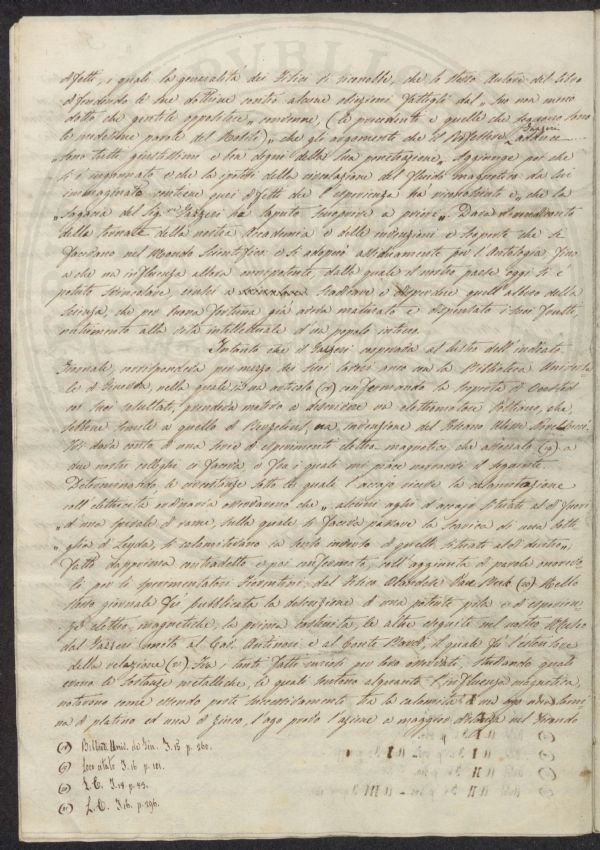 difetti, i quali la generalità dei Fisici vi riconobbe, che lo stesso Autore del libro
difendendo le sue dottine contro alcune obiezioni fattegli dal „ suo non meno
dotto che gentile oppositore „ convenne, (le precedenti e quelle che seguono sono
le medesime parole del Nobili) „ che gli argomenti che il Professore Gazzeri adduce
„ sono tutti giustissimi e ben degni della sua penetrazione „. Aggiunge poi che
si è ingannato e che la ipotesi della circolazione del fluido magnetico da lui
immaginata contiene quei difetti che l'esperienza ha riconosciuti e „ che la
„ sagacia del Sig. Gazzeri ha saputo scuoprire a priori „. Dava
della nostra Accademia e delle invenzioni e scoperte che si
facevano nel Mondo Scientifico e si adoprò assiduamente per l'Antologia fino
a che una influenza allora onnipotente, dalla quale il nostro paese oggi si è
potuto svincolare, riuscì a sradicare e disperdere quell'albero della
scienza, che per buona fortuna già aveva maturato e dispensato i suoi frutti,
nutrimento alla vita intellettuale d'un popolo intiero.
Intanto che il Gazzeri cooperava al lustro dell'indicato
Giornale, corrispondeva per mezzo dei suoi lavori anco con la Biblioteca Universa-
le di Ginevra, nella quale in un articolo (8) confermando la scoperta di Oersted
nei suoi resultati, prendeva motivo a descrivere un elettromotore Voltiano, che
sebbene simile a quello di Berzelius, era invenzione del Toscano Ulisse Novellucci.
Vi dava conto di una serie di esperimenti elettro magnetici che associato (9) a
due nostri colleghi ei faceva e fra i quali mi piace narrarvi il seguente.
Determinando le circostanze sotto le quali l'acciajo riceve la calamitazione
coll'elettricità ordinaria osservarono che „ alcuni aghi d'acciajo situati al di fuori
„ d'una spirale di rame, sulla quale si faceva passare la scarica di una botti-
„ glia di Leyda, si calamitavano in senso inverso di quelli situati al di dentro „.
Fatto dapprima contradetto e poi confermato, coll'aggiunta di parole onorevo-
li per li sperimentatori Fiorentini, dal Fisico Olandese Van Beek (10) Nello
stesso giornale fu pubblicata la descrizione di una potente pila e d'esperien-
ze elettro magnetiche, la prima costruita, le altre eseguite nel nostro Museo
dal Gazzeri unito al Cav. Antinori e al Conte Bardi, il quale fu l'estensore
della relazione (11) Fra i tanti fatti curiosi per loro studiando quali
erano le sostanze metalliche, le quali sentono alquanto l'influenza magnetica,
notarono come essendo poste successivamente tra la calamita e un ago una lami-
na di platino ed una di zinco, l'ago provò l'azione a maggior distanza nel secondo
(8) Biblioth. Univ. de Gen. T. 15 p. 260.
(9) Loco citato T. 16 p. 101.
(10) L. C. T. 18 p. 83.
(11) L. C. T. 16. p. 296.